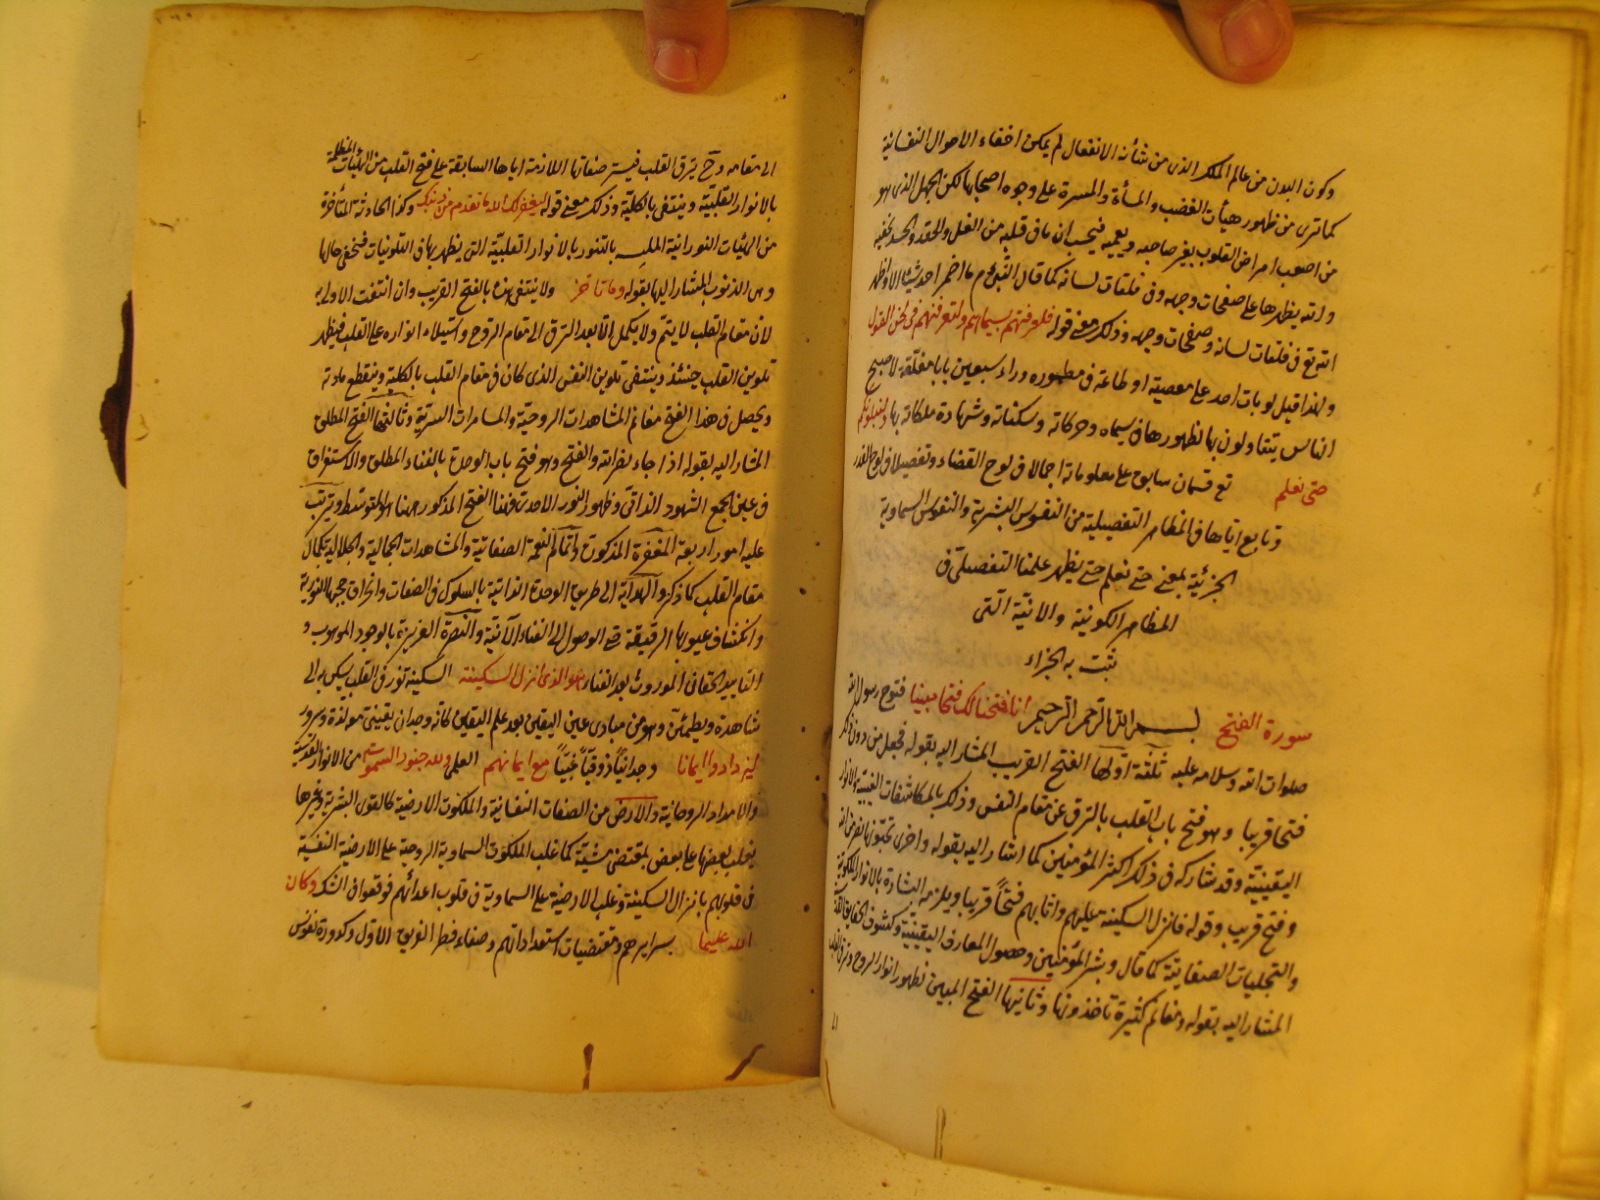 وكون البدن من عالم الملك الذى من شأنه الانفعال لم يمكن اخفاء الاحوال النفسانية
كما ترى من ظهور هيأت الغضب والمسأة والمسرة على وجوه اصحابها لكن الجهل الذى هو
من اصعب امراض القلوب يغر صاحبه ويعميه فيحسب ان ما فى قلبه من الغل والحقد والحسد يخفيه
والله يظهرها على صفحات وجهه وفى فلتات لسانه كما قال النبى م ما اضمر احد شيئا الا واظهر
الله تع فى فلتات لسانه وصفحات وجهه وذلك معنى قوله فلعرفتهم بسيماهم ولتعرفنهم فى لحن القول
ولهذا قيل لو بات احد على معصية او طاعة فى مطموره وراء سبعين بابا مغلقة لاصبح
الناس يتقاولون بها لظهورها فى سيماه وحركاته وسكناته وشهادة ملكاته بها ولنبلونكم
حتى نعلم تع قسمان سابق على معلوماته اجمالا فى لوح القضاء وتفصيلا فى لوح القدر
وتابع اياها فى المظاهر التفصيلية من النفوس البشرية والنفوس السماوية
الجزئية بمعنى حتى نعلم حتى يظهر علمنا التفصيلى فى
المظاهر الكونية والانية التى
تثبت به الجزاء
سورة الفتح بسم الله الرحمن الرحيم انا فتحنا لك فتحا مبينا فتوح رسول الله
صلوات الله وسلامه عليه ثلثة اولها الفتح القريب المشار اليه بقوله فجعل من دون ذلك
فتحا قريبا وهو فتح باب القلب بالترقى عن مقام النفس وذلك بالمكاشفات الغيبية والانوار
اليقينية وقد شاركه فى ذلك اكثر المؤمنين كما اشار اليه بقوله واخرى تحبونها نصر من الله
وفتح قريب وقوله فانزل السكينة عليهم واثابهم فتحًا قريبا ويلزمه البشارة بالانوار الملكوتية
والتجليات الصفاتية كما قال وبشر المؤمنين وحصول المعارف اليقينية وكشوف الحقايق القدسية
المشار اليه بقوله ومغانم كثيرة تأخذونها وثانيها الفتح المبين بظهور انوار الروح وترقى القلب
الى مقامه وح يترقى القلب فيستر صفاتها اللازمة اياها السابقة على فتح القلب من الهيئات المظلمة
بالانوار القلبية وينتفى بالكلية وذلك معنى قوله ليغفر لك الله ما تقدم من ذنبك وكذا الحادثة المتأخرة
من الهيئات النورانية بالتنور بالانوار القلبية التى يظهر بها فى التلوينات فيخفى حالها
وهى الذنوب المشار اليها بقوله وما تأخر ولا ينتفى هذه بالفتح القريب وان انتفت الاولى
لان مقام القلب لا يتم ولا يكمل الا بعد الترقى الى مقام الروح واستيلاء انواره على القلب فيظهر
تلوين القلب حينئذ وينتفى تلوين النفس الذى كان فى مقام القلب بالكلية وينقطع مادته
ويحصل فى هذا الفتح مغانم المشاهدات الروحية والمسامرات السرية وثالثها الفتح المطلق
المشار اليه بقوله اذا جاء نصر الله والفتح وهو فتح باب الوحدة بالفناء المطلق والاستغراق
فى عين الجمع الشهود الذاتى وظهور النور الاحدى فهذا الفتح المذكور ههنا هو المتوسط ويترتب
عليه امور اربعة المغفرة المذكورة واتمام النعمة الصفاتية والمشاهدات الجمالية والجلالية بكمال
مقام القلب كما ذكر والهداية الى طريق الوحدة الذاتية بالسلوك فى الصفات وانخراق حجبها النورية
وانكشاف غيوبها الرقيقة حتى الوصول الى الفناء الآنية والنصرة العزيزة بالوجود الموهوب و
التاييد الحقانى الموروث بعد الفناء هو الذى انزل السكينة السكينة نور فى القلب يسكن به الى
شاهده ويطمئن وهو من مبادى عين اليقين بعد علم اليقين كانه وجدان يقينى معه لذة وسرور
ليزدادوا ايمانا وجدانيًا ذوقيًا عينيًا مع ايمانهم العلمى ولله جنود السموات من الانوار القدسية
والامداد الروحانية والارض من الصفات النفسانية والملكوت الارضية كالقوى البشرية وغيرها
يغلب بعضها على بعض بمقتضى مشيته كما غلب الملكوت السماوية الروحية على الارضية النفسية
فى قلوبهم بانزال السكينة وغلب الارضية على السماوية فى قلوب اعدائهم فوقعوا فى الشك وكان
الله عليما بسرايرهم ومقتضيات استعداداتهم وصفاء فطر الفريق الاول وكدورة نفوس